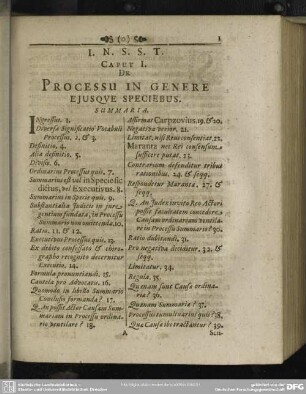 (o) 1
I. N. S. S. T.
CAPUT I.
DE
PROCESSU IN GENERE
EJUSQVE SPECIEBUS.
SUMMARIA.
INgressus. 1.
Diversa significatio Vocabuli
Processus. 2. & 3.
Definitio. 4.
Alia definitio. 5.
Divisio. 6.
Ordinarius Processus quis. 7.
Summarius est vel in Specie sic
dictus, vel Executivus. 8.
Summarius in Specie quis. 9.
Substantialia Judicii in jure
gentium fundata, in Processu
Summario non omittenda. 10.
Ratio. 11. & 12.
Executivus Processus quis. 13.
Ex debito confessato & chirographo
recognito decernitur
Executio. 14.
Formula pronunciandi. 15.
Cautela pro Advocato. 16.
Quomodo in libello Summario
Conclusio formanda? 17.
Q. An possit Actor Causam Summariam
in Processu ordinario
ventilare? 18.
Affirmat Carpzovius. 19. & 20.
Negativa verior. 21.
Limitat. nisi Reus consentiat. 22.
Maranta nec Rei consensum
sufficere putat. 23.
Contrarium defenditur tribus
rationibus. 24. & seqq.
Respondetur Marantæ. 27. &
seqq.
Q. An Judex invito Reo Actori
possit facultatem concedere
Causam ordinariam ventilare
in Processu Summario? 30.
Ratio dubitandi. 31.
Pro negativa deciditur. 32. &
seqq.
Limitatur. 34.
Regula. 35.
Quænam sunt Causæ ordinariæ?
36.
Quænam Summariæ? 37.
Processus tumultuarius quis? 38.
Quæ Causæ ibi tractantur? 39.
A